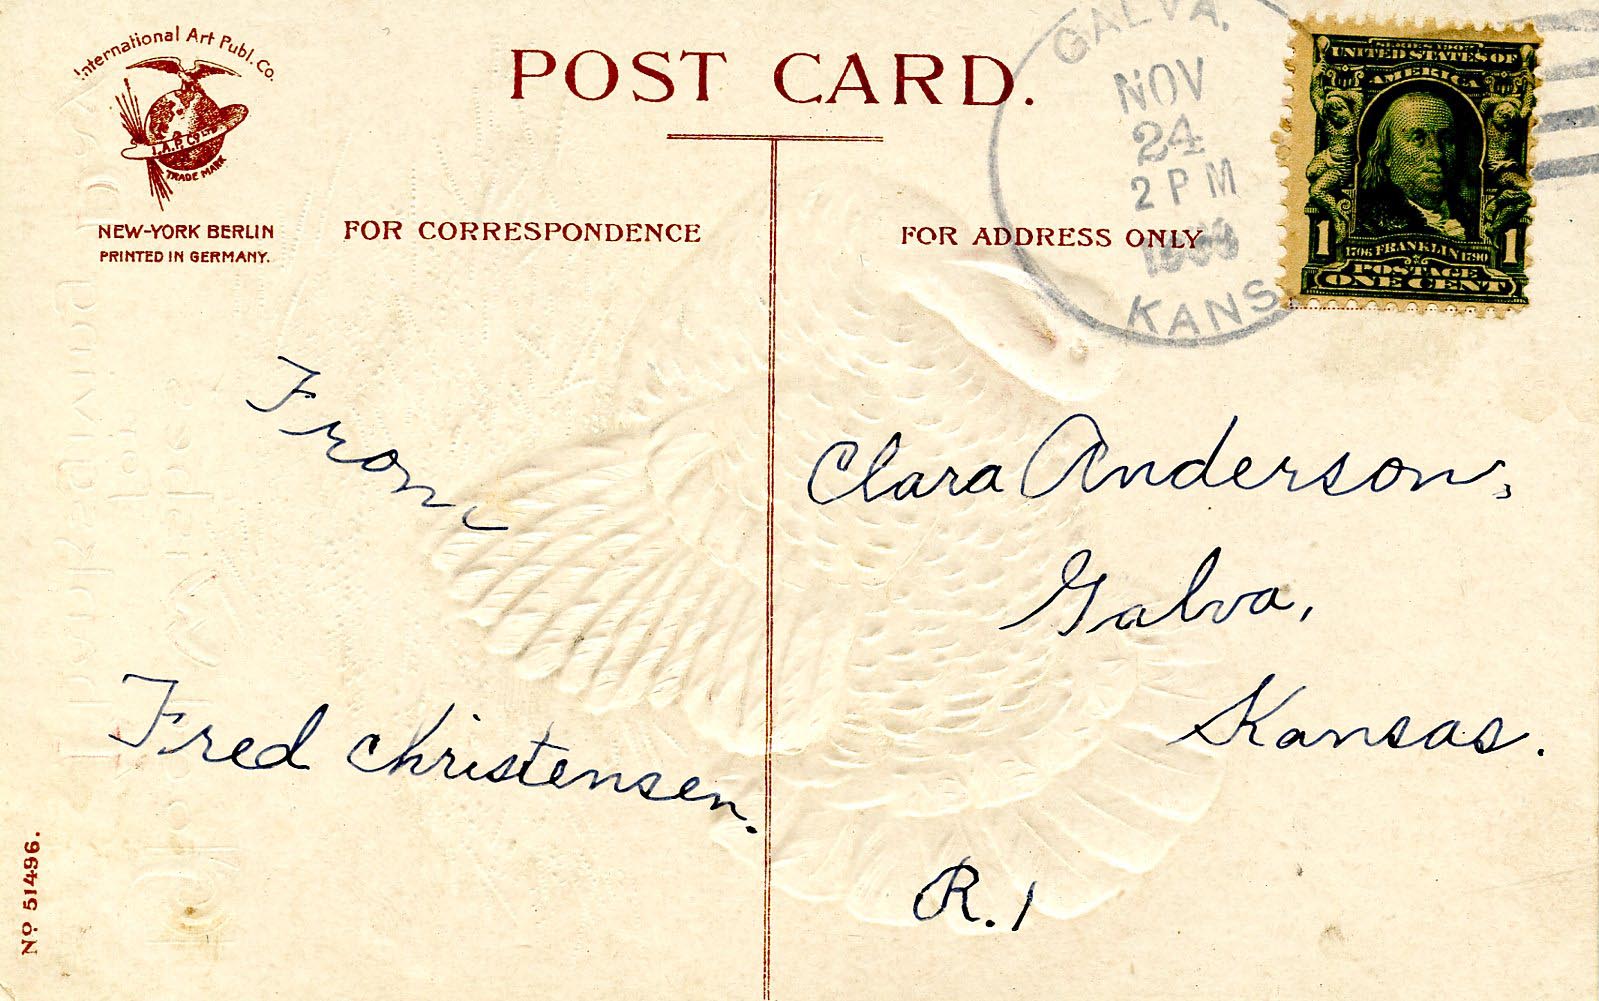 International Art Publ. Co.
I.A.P. Co Ltd
TRADE MARK
NEW-YORK BERLIN
PRINTED IN GERMANY.
POST CARD.
FOR CORRESPONDENCE
FOR ADDRESS ONLY
GALVA.
NOV
24
2 PM
KANS
UNITED STATES OF
AMERICA
1 1706 FRANKLIN 1790 1
POSTAGE
ONE CENT
From
Fred Christensen.
Clara Anderson,
Galva,
Kansas.
R. 1
No 51496.